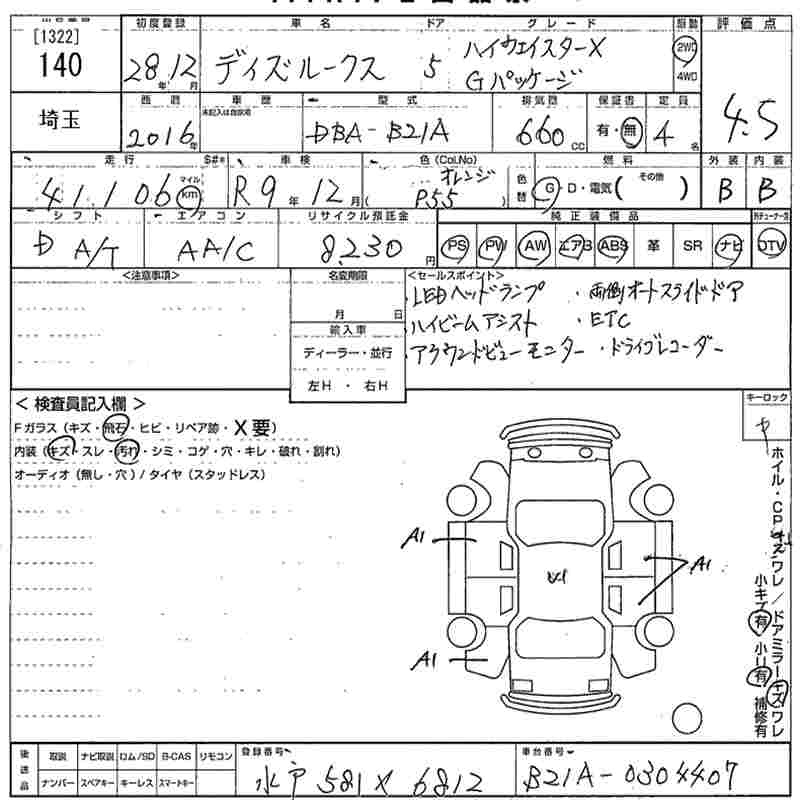 [1322]
140
初度登録 車名 ドア グレード 駆動 評価点
28年12月 ディズルークス 5 ハイウェイスターX
Gパッケージ
2WD
4WD
4.5
埼玉
西暦 車歴 型式 排気量 保証書 定員
未記入は自家用
2016年 DBA-B21A 660cc 有・無 4名
走行 S#* 車検 色(Col.No) 燃料 外装 内装
41,106 マイル km R9年12月 オレンジ P55 色替 G・D・電気( その他 ) B B
シフト エアコン リサイクル預託金 純正装備品
D A/T AA/C 8,230円 PS PW AW エアB ABS 革 SR ナビ DTV
<注意事項> 名変期限 <セールスポイント>
月 日
輸入車
ディーラー・並行
左H・右H
・LEDヘッドランプ ・両側オートスライドドア
・ハイビームアシスト ・ETC
・アラウンドビューモニター ・ドライブレコーダー
<検査員記入欄>
キーロック
Fガラス(キズ・飛石・ヒビ・リペア跡・X要)
内装(キズ・スレ・汚れ・シミ・コゲ・穴・キレ・破れ・割れ)
オーディオ(無し・穴)/タイヤ(スタッドレス)
A1
A1
A1
ホイル・CPキズワレ/ドアミラーキズワレ
小キズ有 小凹有 補修有
後送品 取説 ナビ取説 ロム/SD B-CAS リモコン
ナンバー スペアキー キーレス スマートキー
登録番号 車台番号
水戸 581 X 6812 B21A-0304407